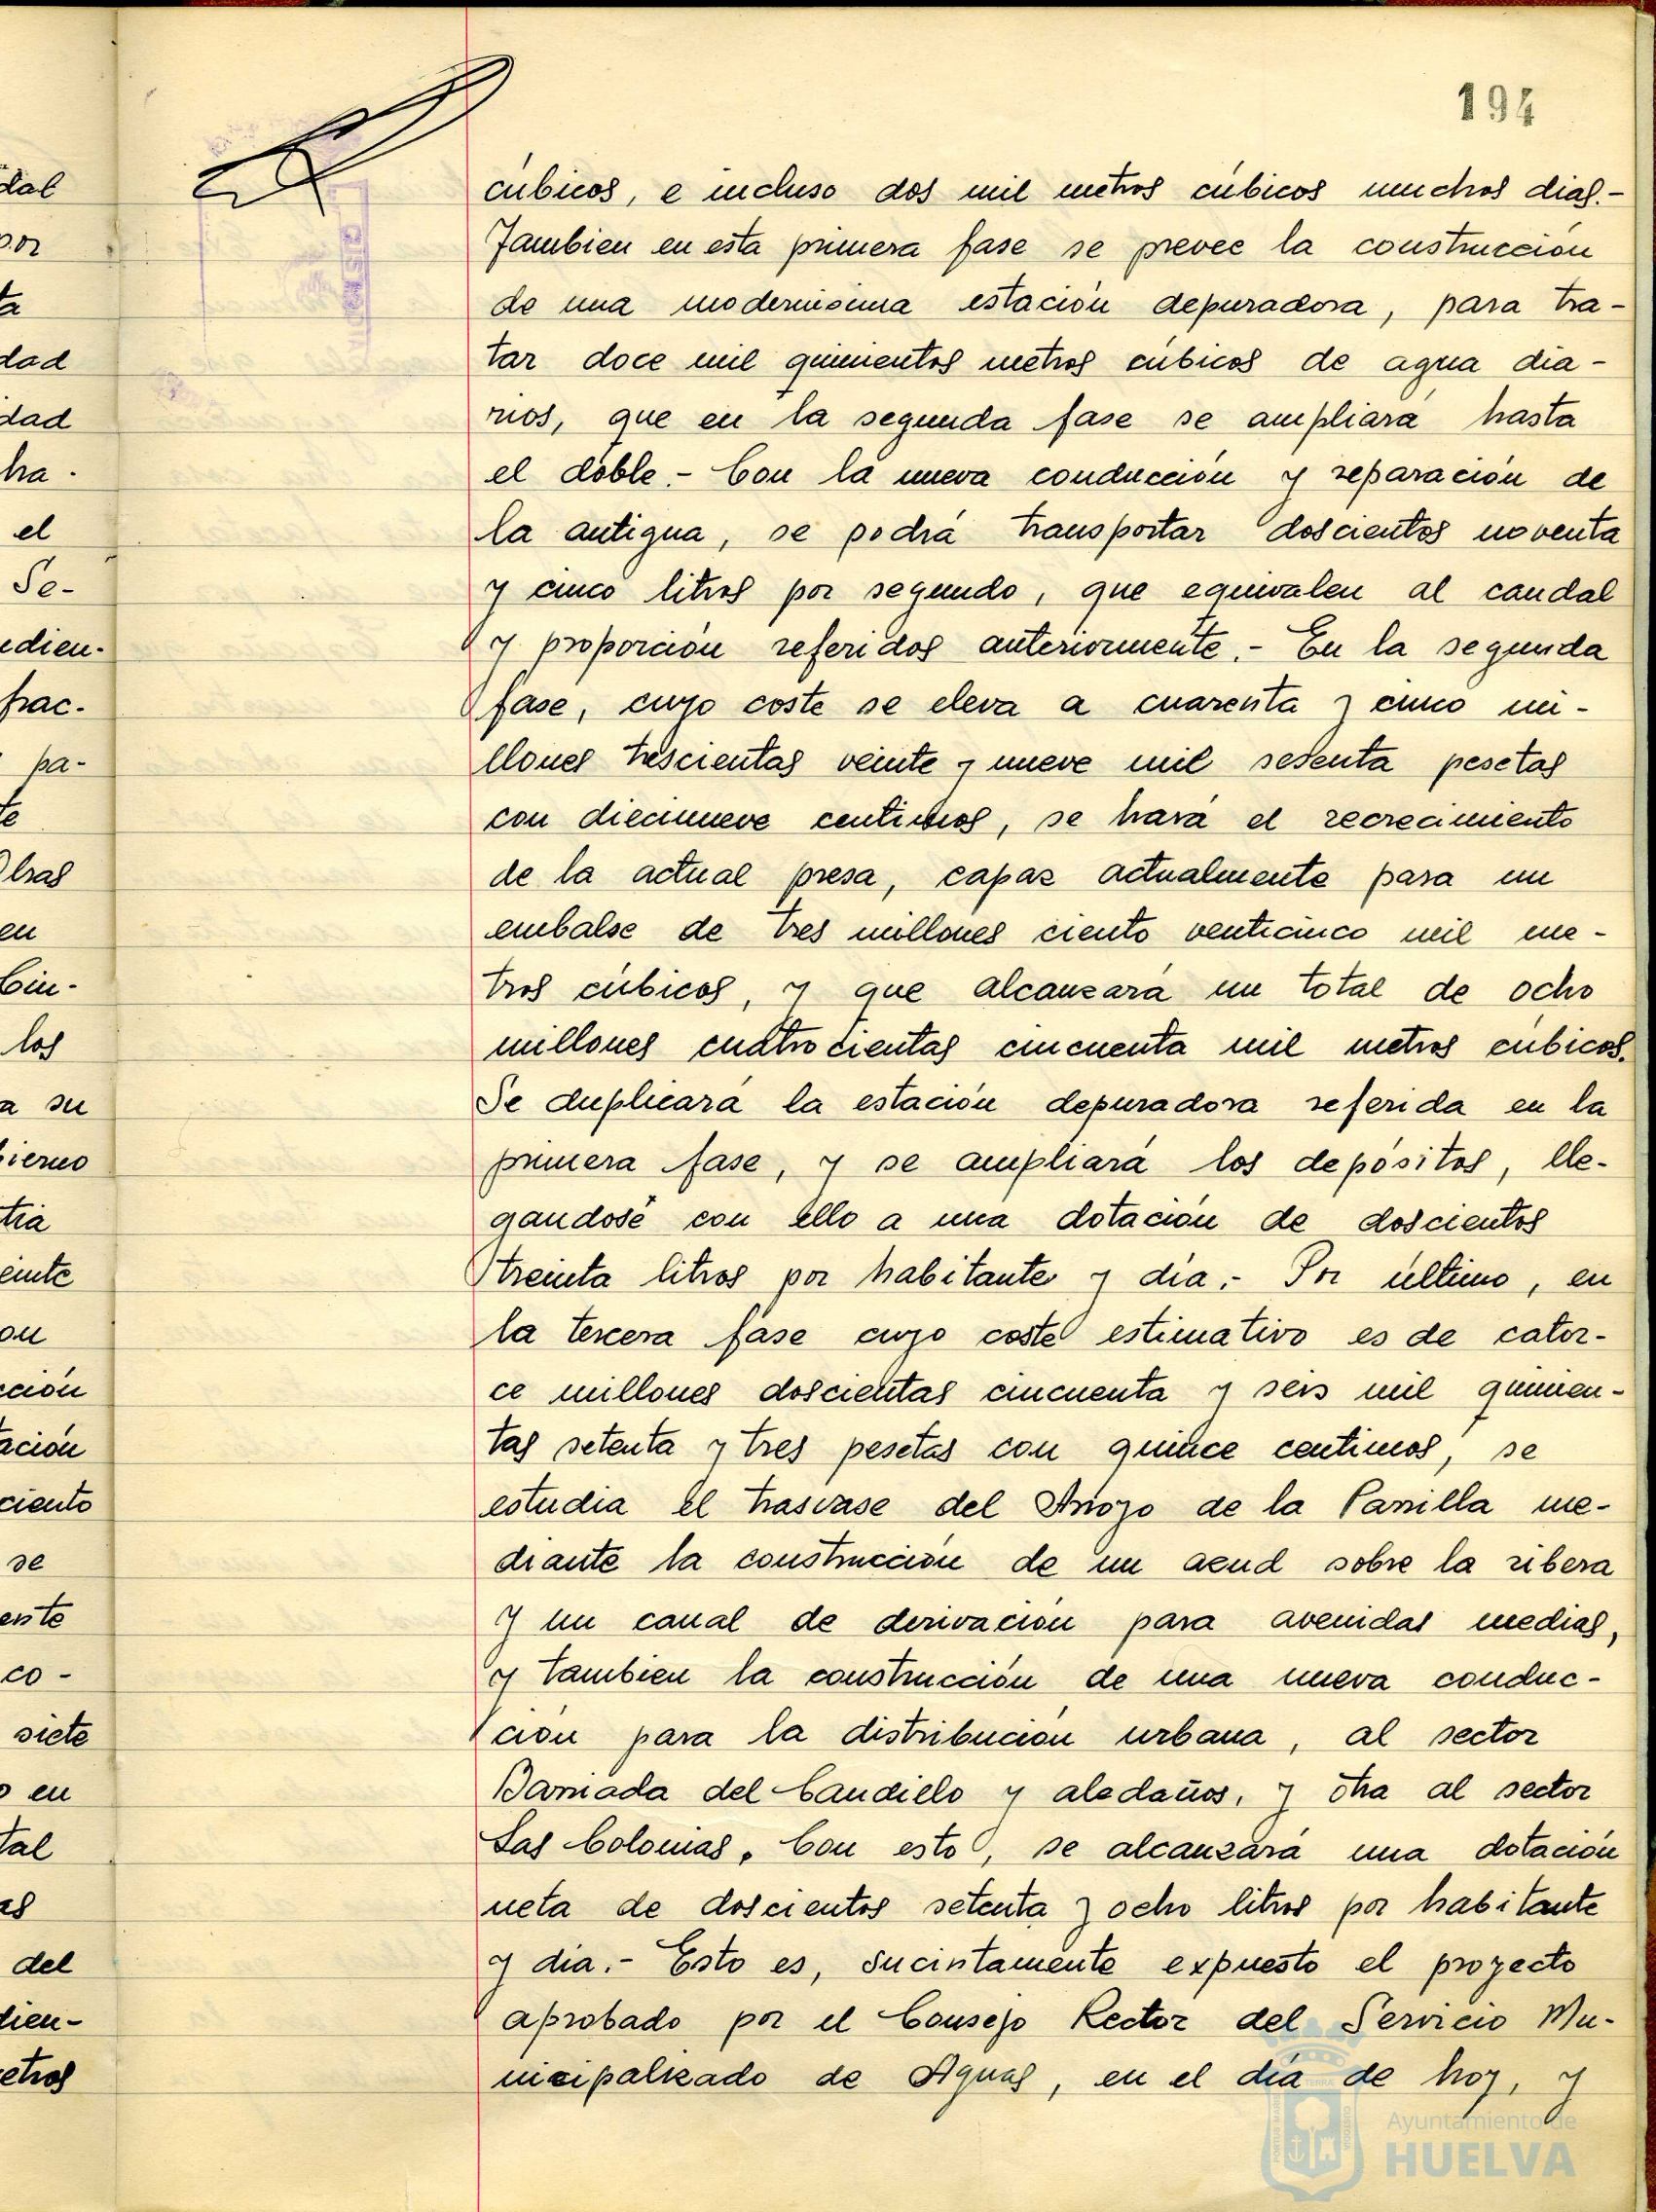 194
cúbicos, e incluso dos mil metros cúbicos muchos dias.-
Tambien en esta primera fase se prevee la construcción
de una modernisima estación depuradora, para tra-
tar doce mil quinientos metros cúbicos de agua dia-
rios, que en la segunda fase se ampliará hasta
el doble.- Con la nueva conducción y reparación de
la antigua, se podrá transportar doscientos noventa
y cinco litros por segundo, que equivalen al caudal
y proporción referidos anteriormente.- En la segunda
fase, cuyo coste se eleva a cuarenta y cinco mi-
llones trescientas veinte y nueve mil sesenta pesetas
con diecinueve centimos, se hará el recrecimiento
de la actual presa, capaz actualmente para un
embalse de tres millones ciento venticinco mil me-
tros cúbicos, y que alcanzará un total de ocho
millones cuatrocientas cincuenta mil metros cúbicos.
Se duplicará la estación depuradora referida en la
primera fase, y se ampliará los depósitos, lle-
gandose con ello a una dotación de doscientos
treinta litros por habitante y día.- Por último, en
la tercera fase cuyo coste estimativo es de cator-
ce millones doscientas cincuenta y seis mil quinien-
tas setenta y tres pesetas con quince centimos, se
estudia el trasvase del Arroyo de la Parrilla me-
diante la construcción de un azud sobre la ribera
y un canal de derivación para avenidas medias,
y tambien la construcción de una nueva conduc-
ción para la distribución urbana, al sector
Barriada del Caudillo y aledaños, y otra al sector
Las Colonias. Con esto, se alcanzará una dotación
neta de doscientos setenta y ocho litros por habitante
y día.- Esto es, sucintamente expuesto el proyecto
aprobado por el Consejo Rector del Servicio Mu-
nicipalizado de Aguas, en el día de hoy, y
Ayuntamiento de
HUELVA